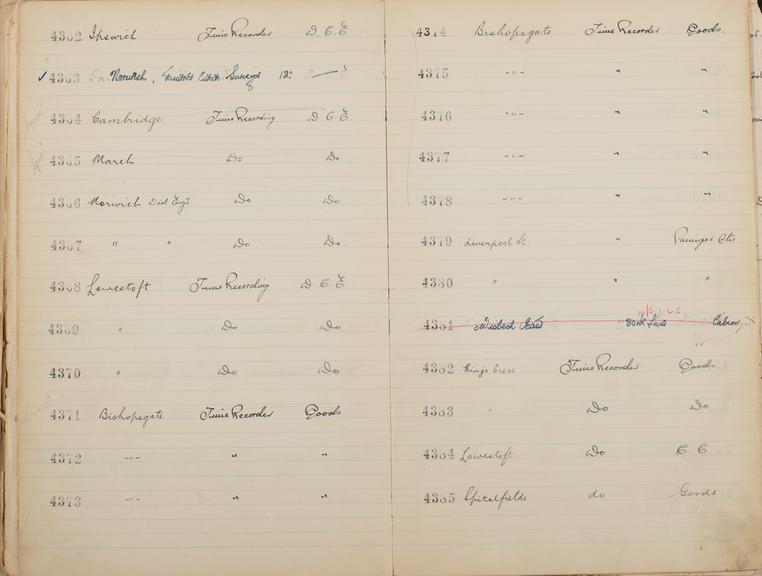 4362 Ipswich Time Recorder D. C. E
✓ 4363 Norwich, District Estate Surveyor 12"
4364 Cambridge Time Recording D C E
4365 March Do Do
4366 Norwich Dist Eng's Do Do
4367 " " Do Do
4368 Lowestoft Time Recording D. C. E
4369 " Do Do
4370 " Do Do
4371 Bishopsgate Time Recorder Goods
4372 -"- " "
4373 -"- " "
4374 Bishopsgate Time Recorder Goods.
4375 -"- " "
4376 -"- " "
4377 -"- " "
4378 -"- " "
4379 Liverpool St. "
4380 " " "
4381 Wisbech East
4382 Kings Cross Time Recorder Goods
4383 " Do Do
4384 Lowestoft Do C. C
4385 Spitalfields do Goods